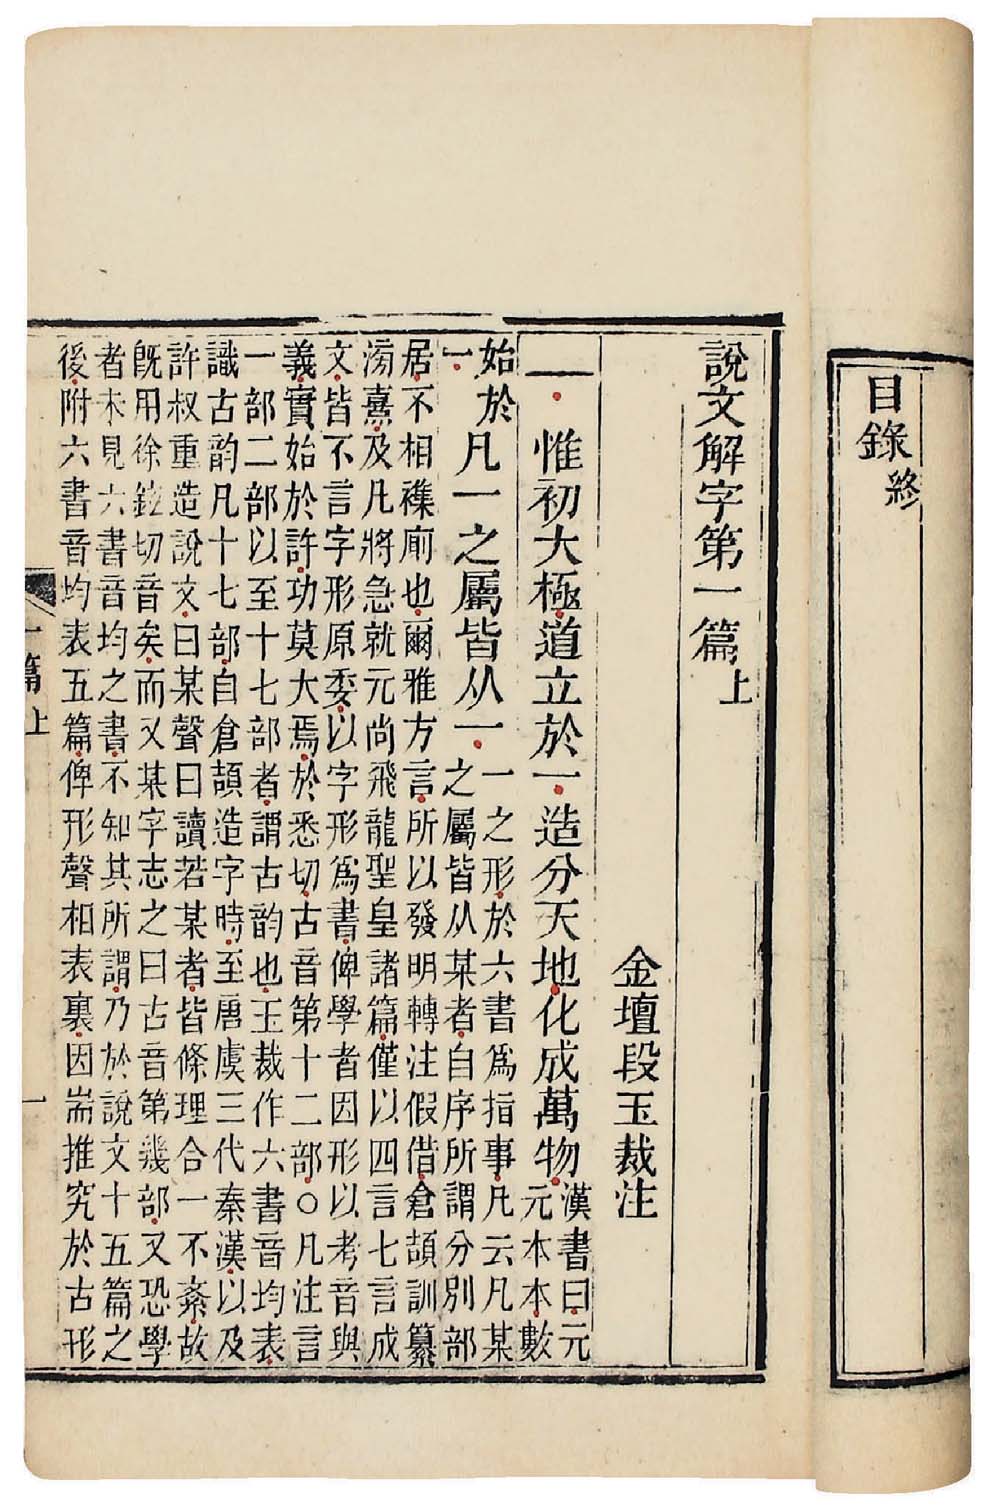 目錄終
說文解字第一篇上
金壇段玉裁注
一惟初大極道立於一造分天地化成萬物漢書曰元
元本本數
始於
一
凡一之屬皆从一一之形於六書爲指事凡云凡某
之屬皆从某者自序所謂分別部
居不相襍廁也爾雅方言所以發明轉注假借倉頡訓纂
滂熹及凡將急就元尚飛龍聖皇諸篇僅以四言七言成
文皆不言字形原委以字形爲書俾學者因形以考音與
義實始於許功莫大焉於悉切古音第十二部○凡注言
一部二部以至十七部者謂古韵也玉裁作六書音均表
識古韵凡十七部自倉頡造字時至唐虞三代秦漢以及
許叔重造說文曰某聲曰讀若某者皆條理合一不紊故
既用徐鉉切音矣而又某字志之曰古音第幾部又恐學
者未見六書音均之書不知其所謂乃於說文十五篇之
後附六書音均表五篇俾形聲相表裏因耑推究於古形
一篇上
一